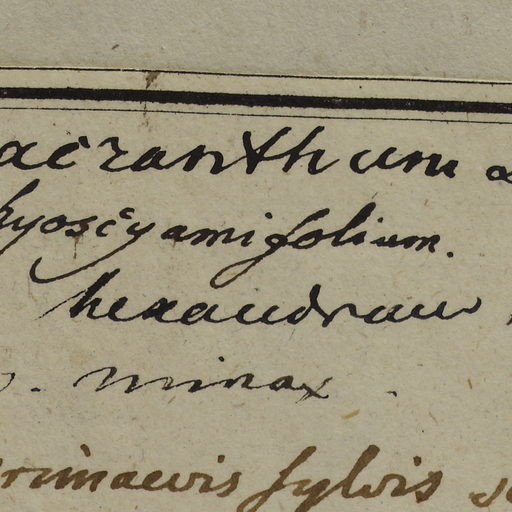 acranthum
hyoscyamifolium.
hexandrum
minax.
primaevis sylvis